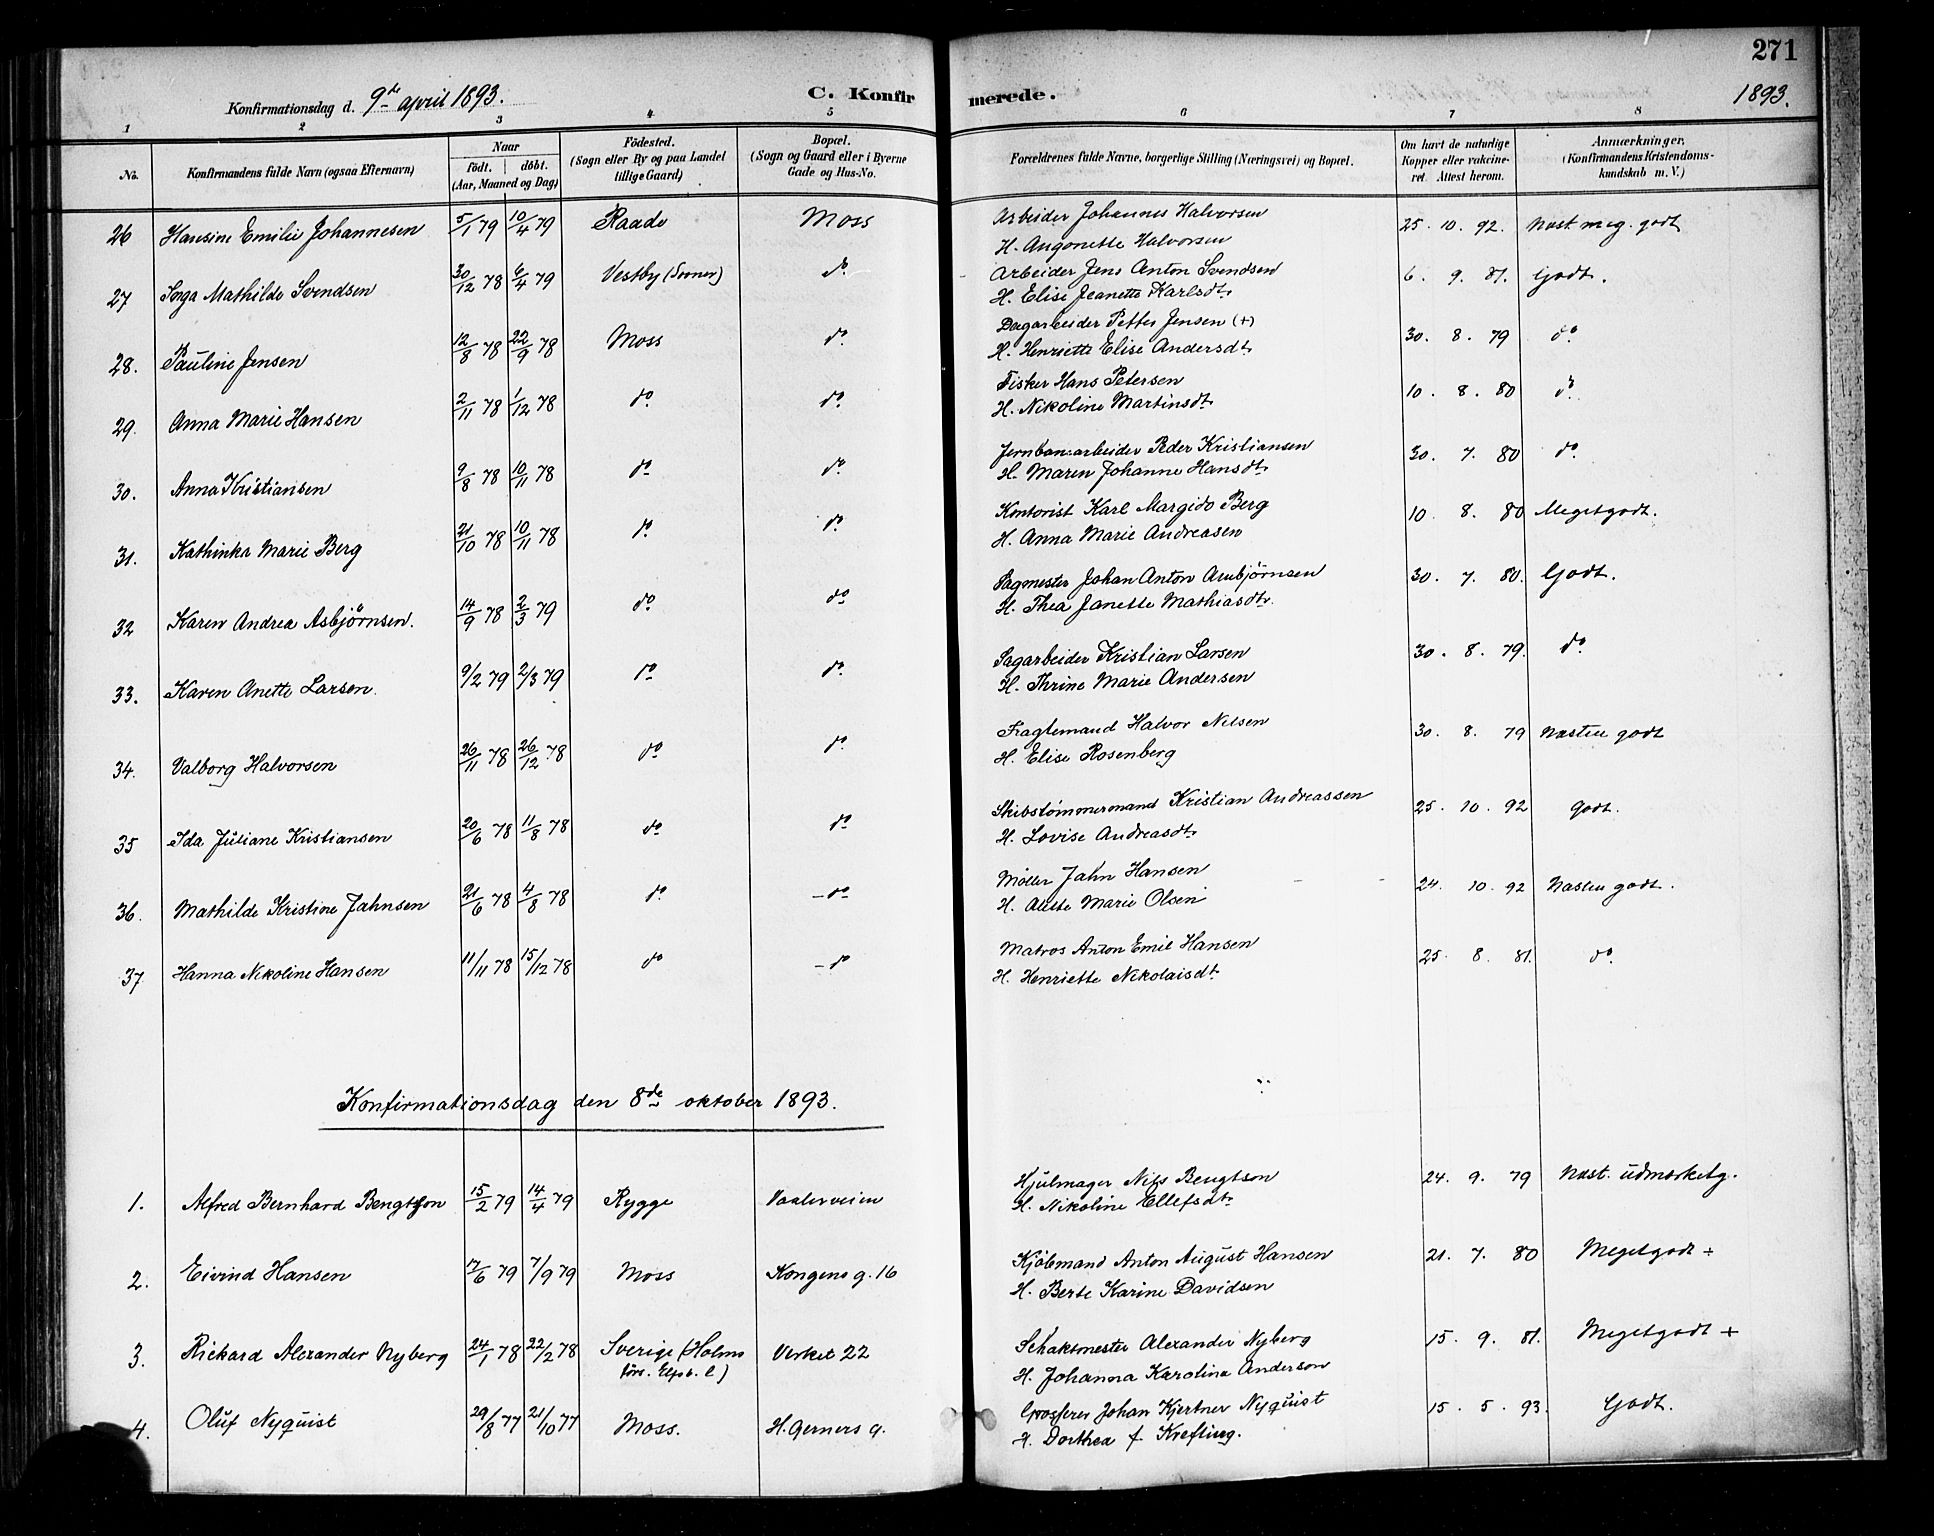 271
Konfirmationsdag d. 9de april 1893.
C. Konfirmerede.
1893.
1 2 3 4 5 6 7 8
No. Konfirmandens fulde Navn (ogsaa Efternavn) Naar födt. döbt. (Aar, Maaned og Dag) Födested. (Sogn eller By og paa Landet tillige Gaard) Bopæl. (Sogn og Gaard eller i Byerne Gade og Hus-No. Forældrenes fulde Navne, borgerlige Stilling (Næringsvei) og Bopæl. Om havt de naturlige Kopper eller vakcineret. Attest herom. Anmærkninger, (Konfirmandens Kristendomskundskab m. V.)
26 Hansine Emilie Johannesen 5/1 79 10/4 79 Raade Moss Arbeider Johannes Halvorsen 25. 10. 92. Næst meg. godt
H. Angonette Halvorsen
27 Inga Mathilde Svendsen 30/12 78 6/4 79 Vestby (Sooner) do Arbeider Jens Anton Svendsen 6. 9. 81. Godt.
H. Elise Jeanette Karlsdtr
28. Pauline Jensen 12/8 78 22/9 78 Moss do Dagarbeider Petter Jensen (+) 30. 8. 79 do
H. Henriette Elise Andersdtr
29. Anna Marie Hansen 2/11 78 1/12 78 do do Fisker Hans Petersen 10. 8. 80 do
H. Nikoline Martinsdtr
30. Anna Kristiansen 9/8 78 10/11 78 do do Jernbanearbeider Peder Kristiansen 30. 7. 80 do
H. Maren Johanne Hansdtr
31. Kathinka Marie Berg 21/10 78 10/11 78 do do Kontorist Karl Margido Berg 10. 8. 80 Meget godt.
H. Anna Marie Andreasen
32 Karen Andrea Asbjørnsen. 14/9 78 2/3 79 do do Sagmester Johan Anton Arnbjörnsen 30. 7. 80. Godt.
H. Thea Janette Mathiasdtr.
33. Karen Anette Larsen. 9/2 79 2/3 79 do do Sagarbeider Kristian Larsen 30. 8. 79. do
H. Thrine Marie Andersen
34. Valborg Halvorsen 26/11 78 26/12 78 do do Fragtemand Halvor Nilsen 30. 8. 79 Næsten godt
H. Elise Rosenberg
35 Ida Juliane Kristiansen 20/6 78 11/8 78 do do Skibstømmermand Kristian Andreassen 25. 10. 92 Godt.
H. Lovise Andreasdtr
36. Mathilde Kristine Jahnsen 21/6 78 4/8 78 do do Møller Jahn Hansen 24. 10. 92 Næsten godt.
H. Marie Olsen
37 Hanna Nikoline Hansen 11/11 78 15/12 78 do do Matros Anton Emil Hansen 25. 8. 81. do
H. Henriette Nikolaisdtr
Konfirmationsdag den 8de oktober 1893.
1. Alfred Bernhard Bengtson 15/2 79 14/4 79 Rygge Vaalerveien Hjulmager Nils Bengtson 24. 9. 79 Næst. udmærketg.
H. Nikoline Ellefsdtr
2. Eivind Hansen 17/6 79 7/9 79 Moss Kongens g. 16 Kjøbmand Anton August Hansen 21. 7. 80 Meget godt ÷
H. Berte Karine Davidsen
3. Rickard Alexander Nyberg 24/1 78 22/2 78 Sverige (Holms Verket 22 Schaktmester Alexander Nyberg 15. 9. 81. Meget godt +
förs. Elfsb. l) H. Johanna Karolina Anderson
4. Oluf Nyquist 29/8 77 21/10 77 Moss. H. Gerners g. Grosserer Johan Kjertner Nyquist 15. 5. 93. Godt.
H. Dorthea f. Krefting.